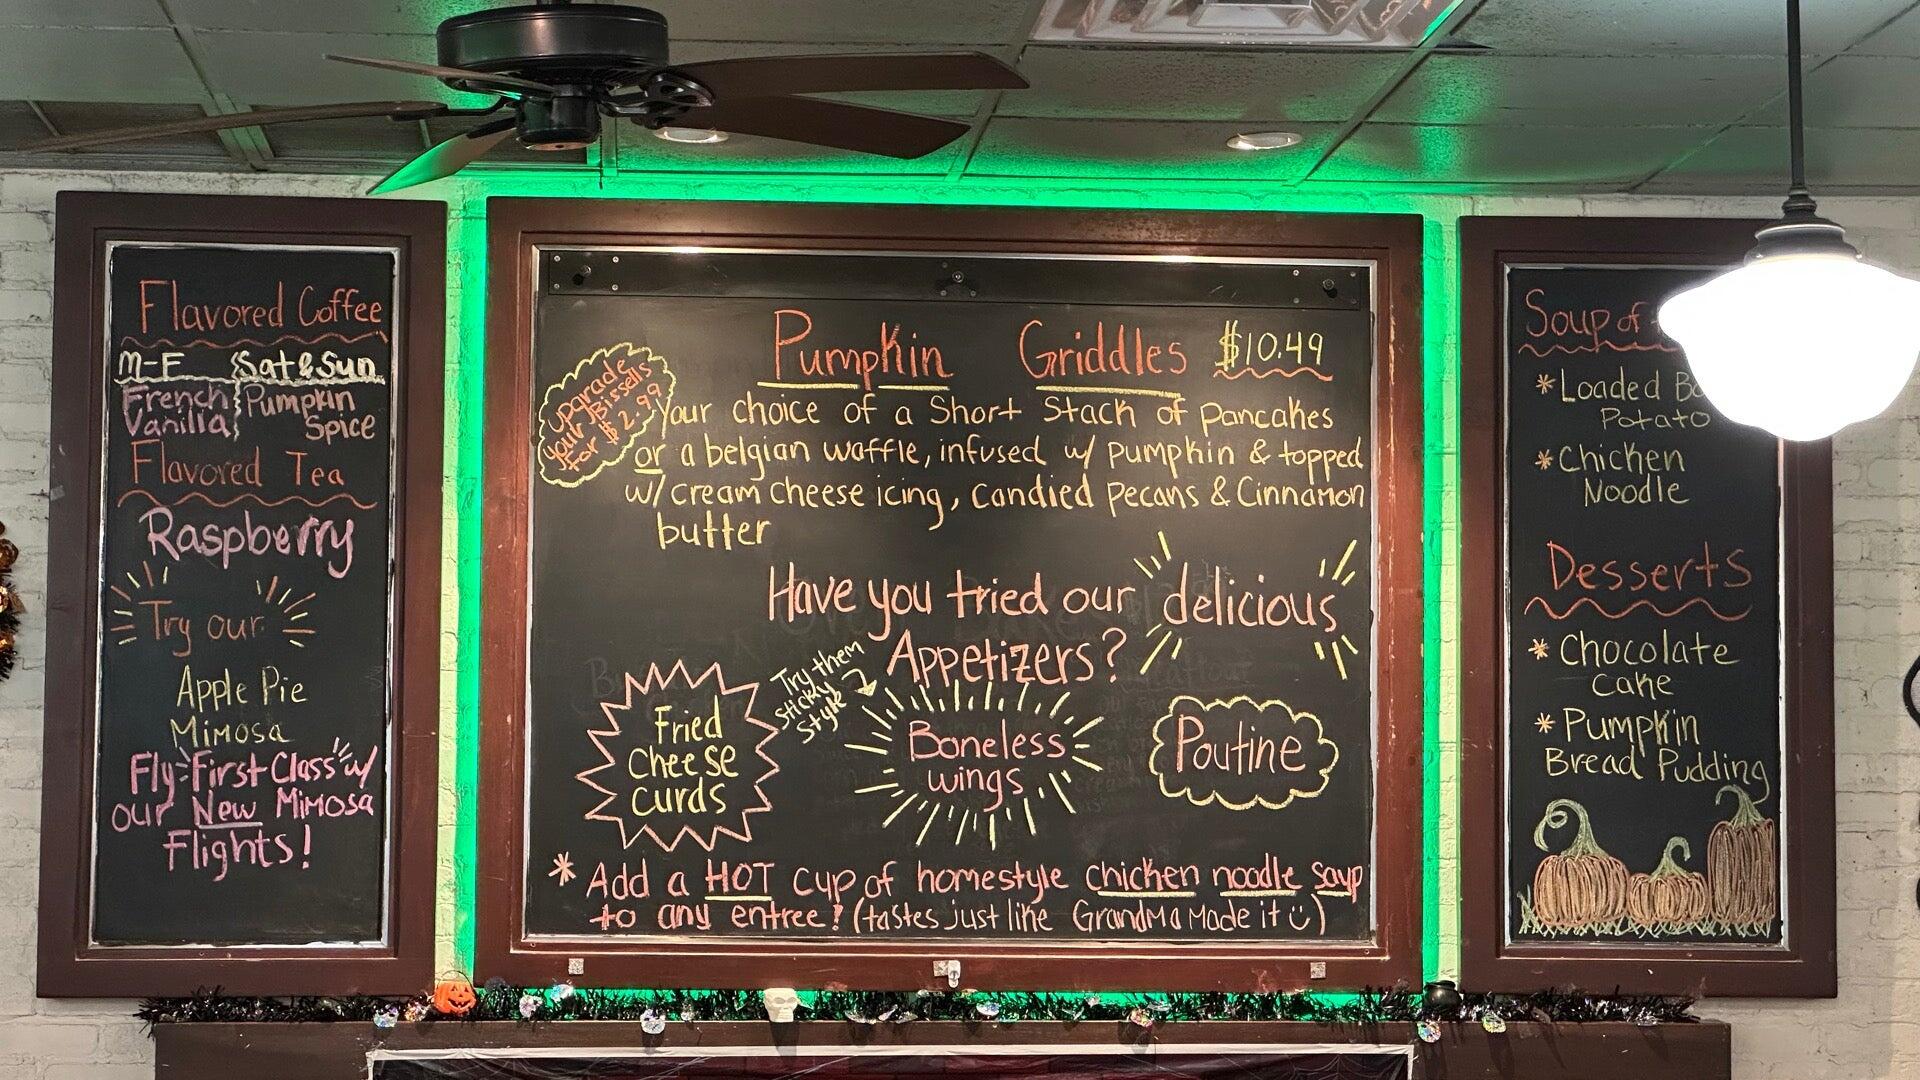 Flavored Coffee
M-F Sat & Sun
French Pumpkin
Vanilla Spice
Flavored Tea
Raspberry
Try our
Apple Pie
Mimosa
Fly "First Class" w/
our New Mimosa
Flights!
Pumpkin Griddles $10.49
upgrade
your Bissells
for $2.99
Your choice of a Short Stack of pancakes
or a belgian waffle, infused w/ pumpkin & topped
w/ cream cheese icing, candied pecans & Cinnamon
butter
Have you tried our delicious
Appetizers?
Fried
cheese
curds
Try them
sticky
style
Boneless
wings
Poutine
* Add a HOT cup of homestyle chicken noodle soup
to any entree! (tastes just like GrandMa Made it ☺)
Soup of
* Loaded
Potato
* Chicken
Noodle
Desserts
* Chocolate
Cake
* Pumpkin
Bread Pudding